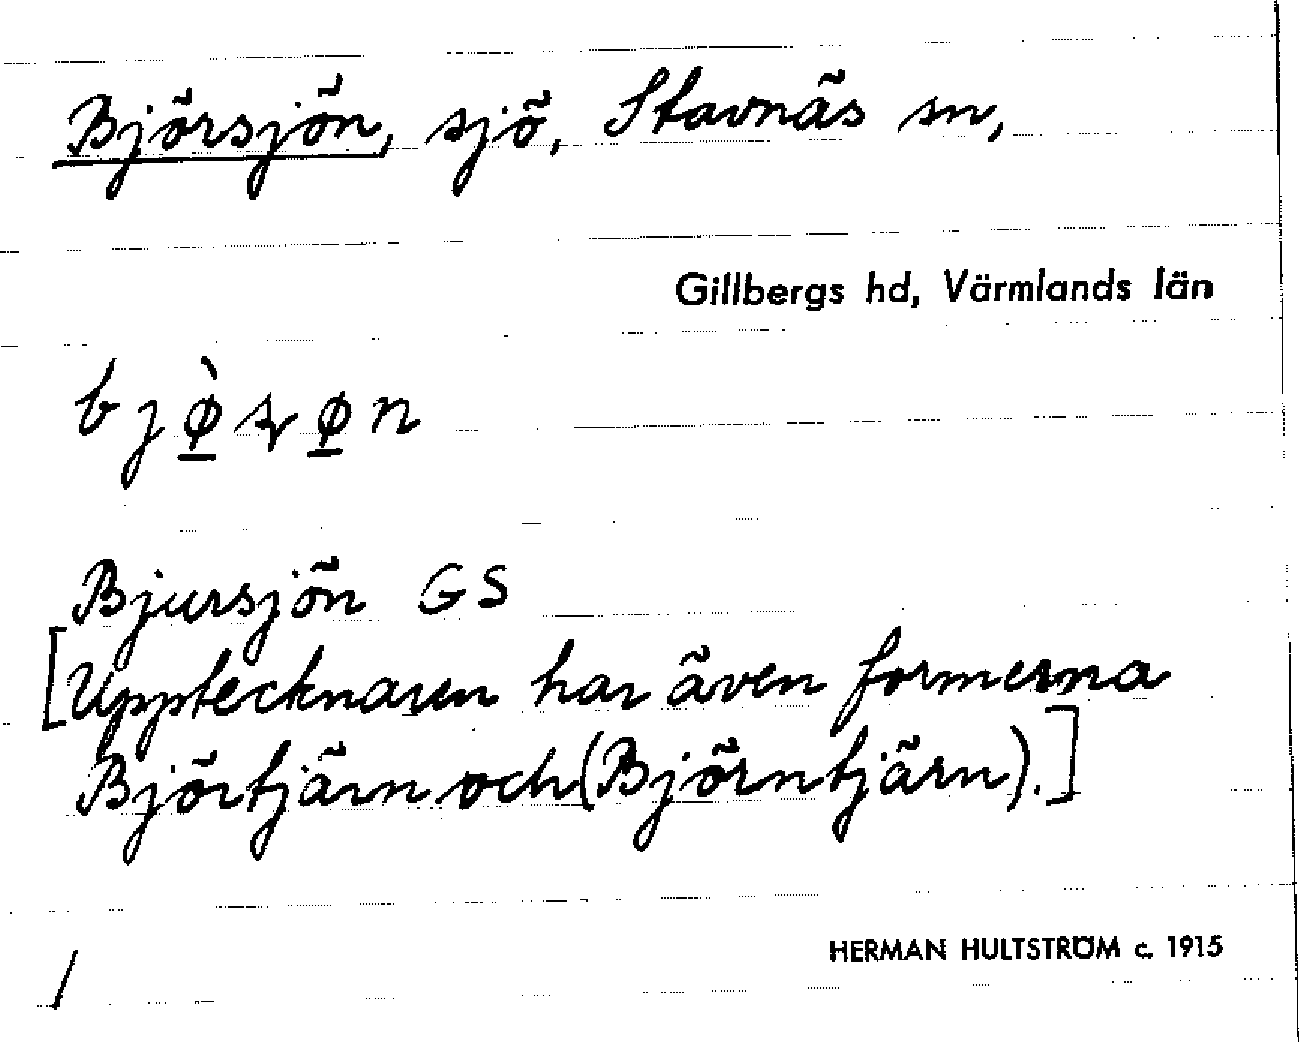 Björsjön, sjö, Stavnäs sn,
Gillbergs hd, Värmlands län
Bjursjön GS
[Upptecknaren har även formerna
Björtjärn och (Björntjärn).]
HERMAN HULTSTRÖM c. 1915
/